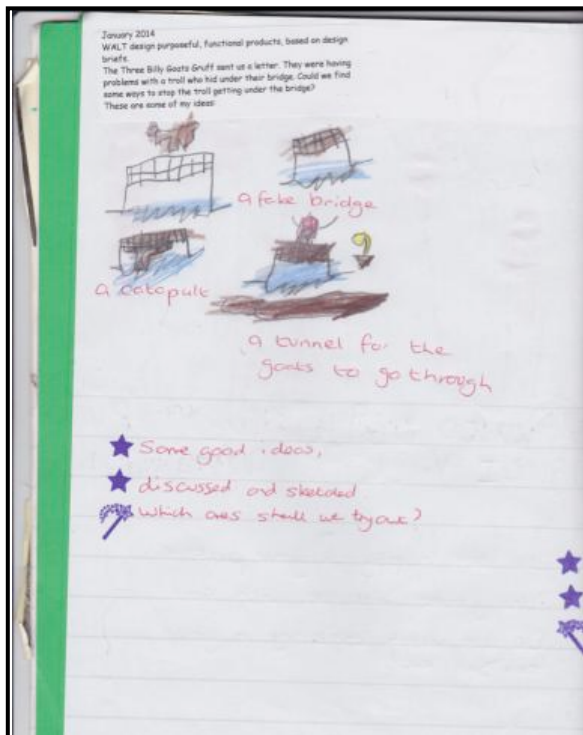 January 2014
WALT design purposeful, functional products, based on design
briefs.
The Three Billy Goats Gruff sent us a letter. They were having
problems with a troll who hid under their bridge. Could we find
some ways to stop the troll getting under the bridge?
These are some of my ideas:
a fake bridge
a catapult
a tunnel for the
goats to go through
Some good ideas,
discussed and sketched
Which ones shall we try out?